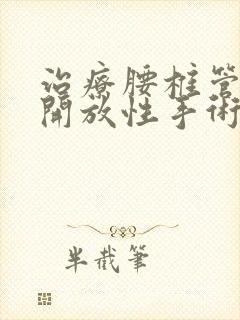 治療腰柱管
開放性手術
半截筆